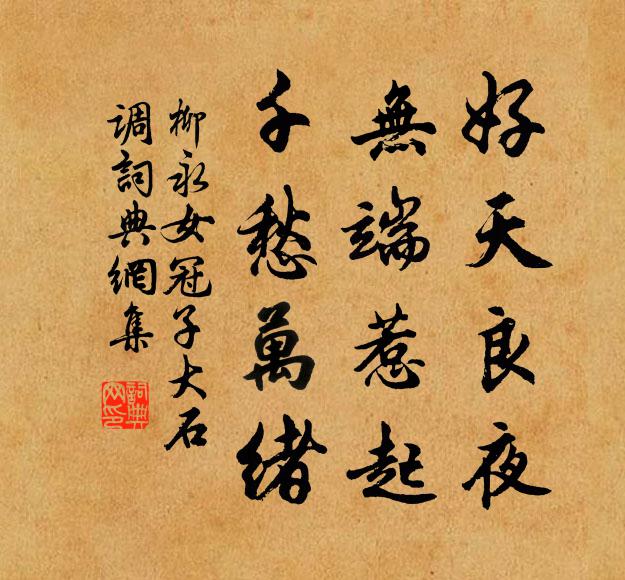 好天良夜
無端惹起
千愁萬緒
柳永女冠子大石
调詞典網集
詞典
网印